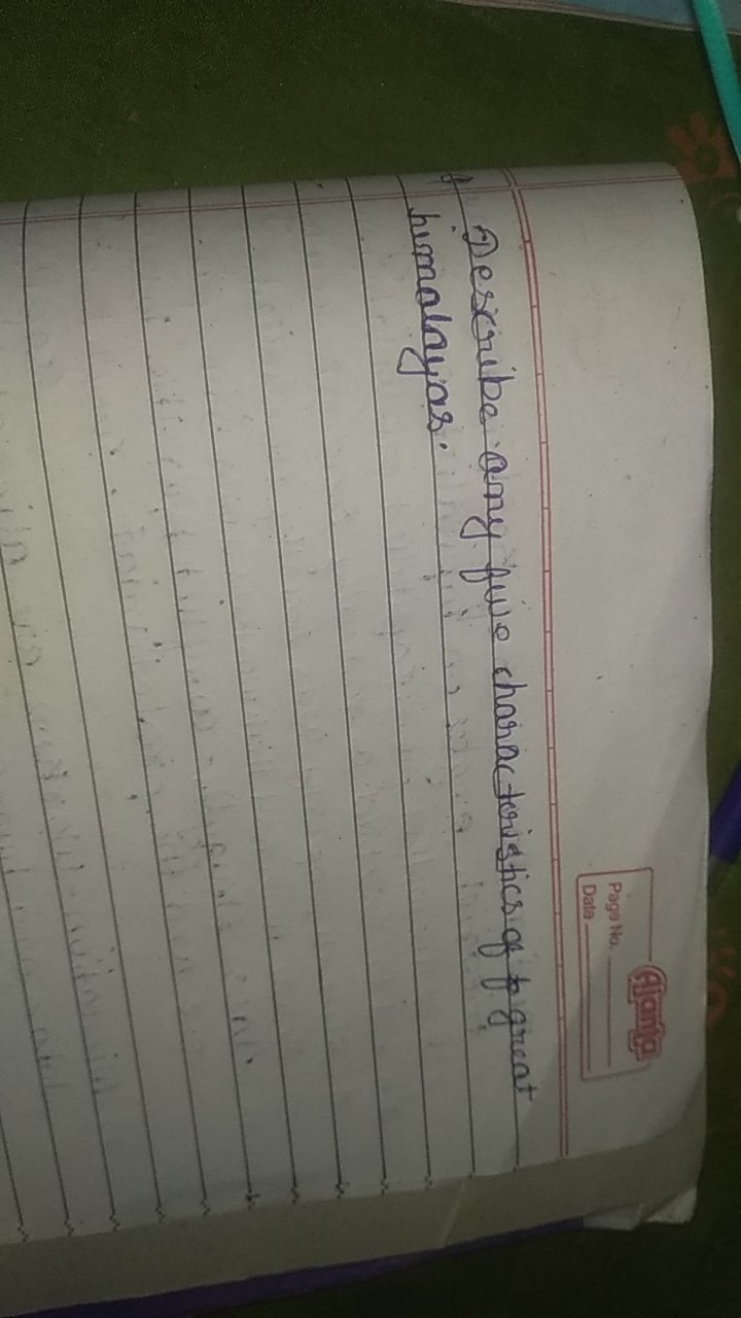 Ajanta
Page No.
Date
Describe any five characteristics of great
himalayas.